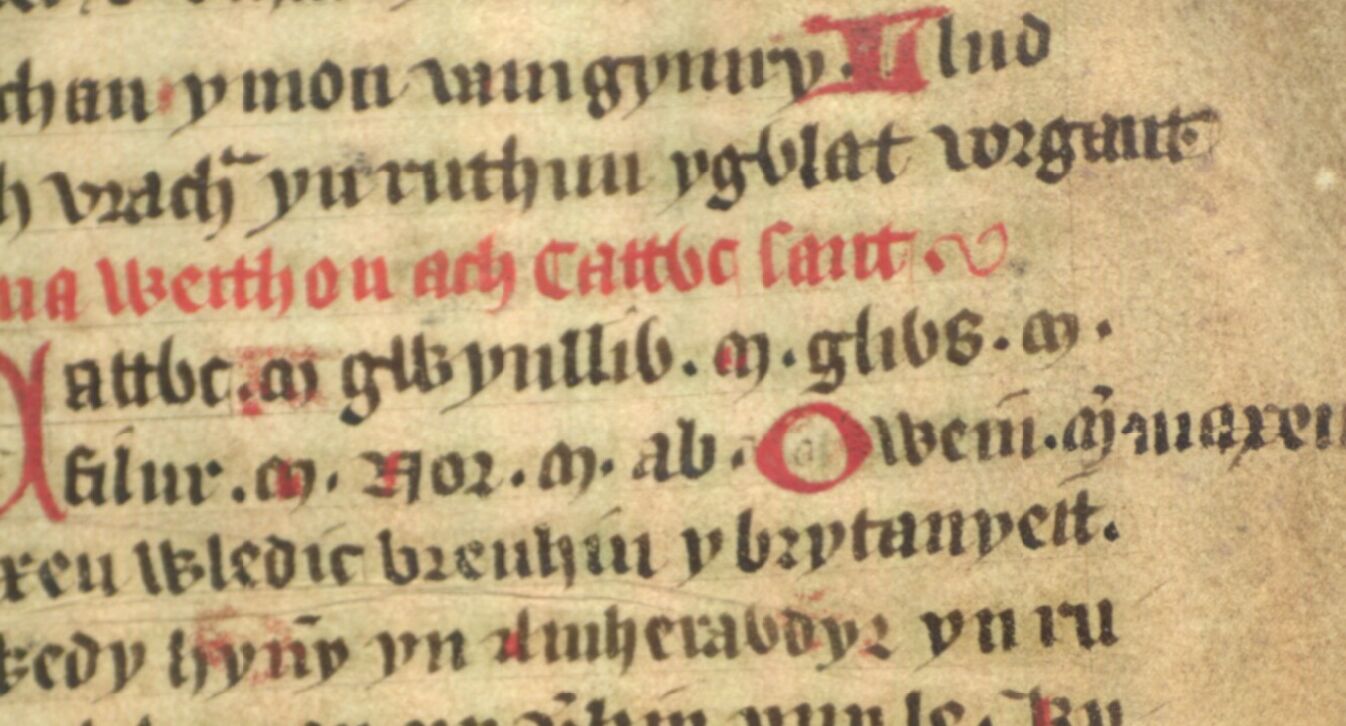 chan ymon vam gynury. Llud
h vrach yn ruthun ygvlat vorgant
ma weithon ach Cattvc sant
attvc. m gwynlliv. m. glivs. m.
filur. m. Nor. m. ab. Owein. m maxen
xen wledic brenhin y brytanyeit.
kedy hynny yn amheravdyr yn ru